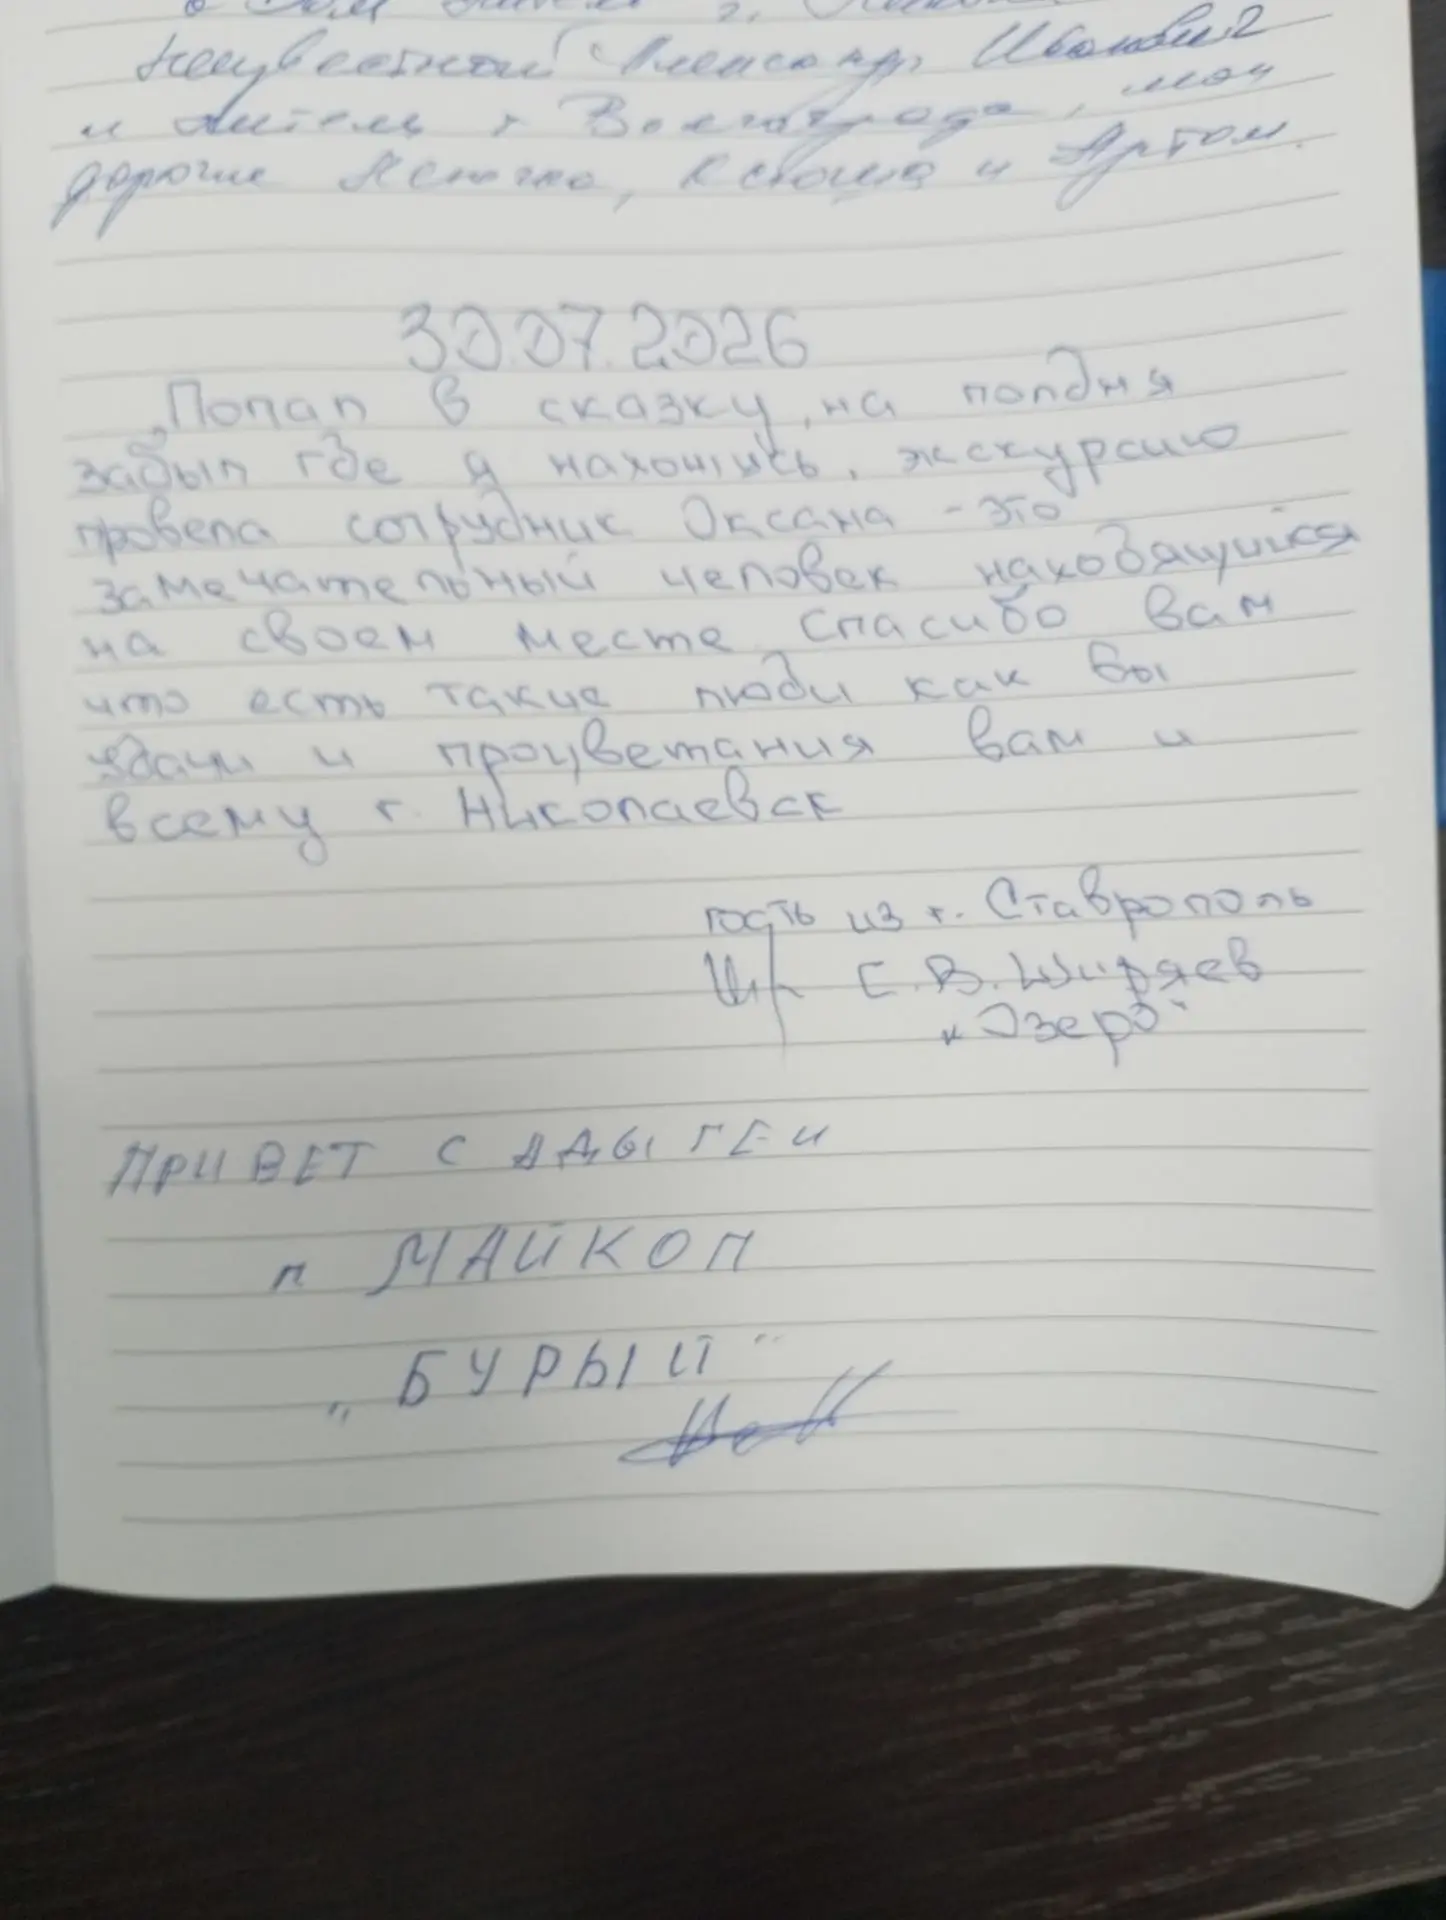 Неизвестной Александр Иванович
и житель г Волгограда, мои
дорогие Ксюша и Артом.
30.07.2026
„Попал в сказку, на полдня
забыл где я нахошусь, экскурсию
провела сотрудник Оксана - это
замечательный человек находящийся
на своем месте. Спасибо вам
что есть такие люди как вы
удачи и процветания вам и
всему г. Николаевск
гость из г. Ставрополь
С. В. Ширяев
"Озеро"
ПРИВЕТ С АДЫГЕИ
п МАЙКОП
„БУРЫЙ"